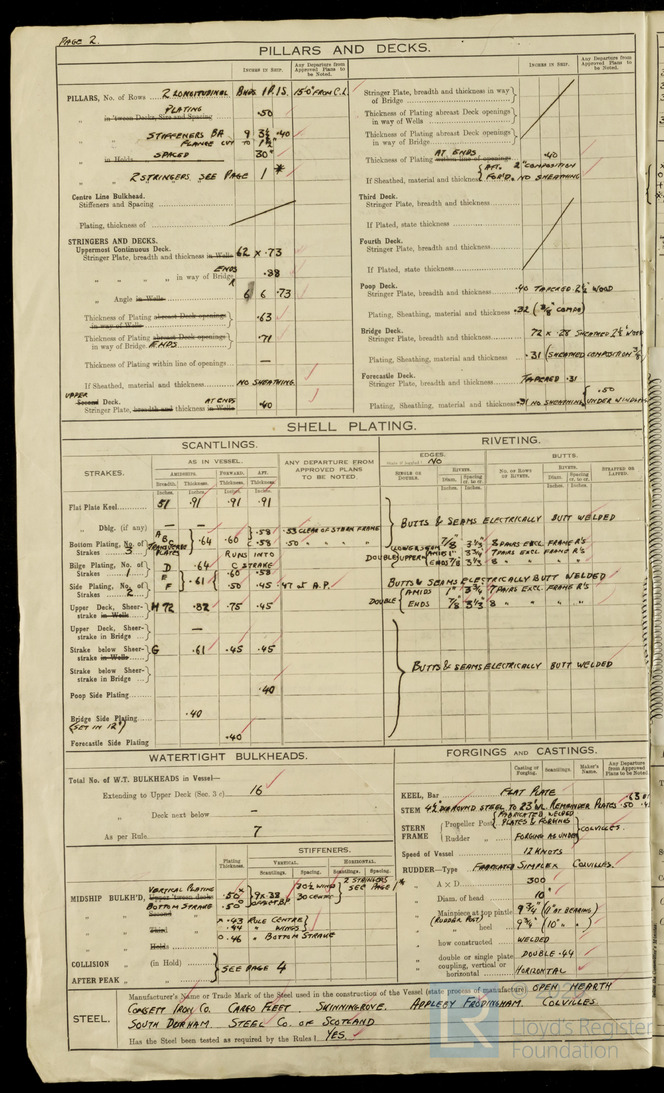 PAGE 2.
PILLARS AND DECKS.
INCHES IN SHIP. Any Departure from Approved Plans to be Noted.
PILLARS, No. of Rows 2 LONGITUDINAL BHDS 1P. 1S. 15'0" FROM C.L.
PLATING
" in 'tween Decks, Size and Spacing .50
" " STIFFENERS BA 9 3½ .40
FLANGE CUT TO 1½"
" in Holds SPACED 30"
" " 2 STRINGERS. SEE PAGE 1 *
Centre Line Bulkhead.
Stiffeners and Spacing
Plating, thickness of
STRINGERS AND DECKS.
Uppermost Continuous Deck.
Stringer Plate, breadth and thickness in Wells 62 x .73
ENDS
" " " " in way of Bridge .88
" Angle in Wells 6 6 .73
Thickness of Plating abreast Deck openings in way of Wells .63
Thickness of Plating abreast Deck openings in way of Bridge ENDS .71
Thickness of Plating within line of openings —
If Sheathed, material and thickness NO SHEATHING.
UPPER
Second Deck. AT ENDS
Stringer Plate, breadth and thickness in Wells .40
INCHES IN SHIP. Any Departure from Approved Plans to be Noted.
Stringer Plate, breadth and thickness in way of Bridge
Thickness of Plating abreast Deck openings in way of Wells
Thickness of Plating abreast Deck openings in way of Bridge
AT ENDS
Thickness of Plating within line of openings .40
If Sheathed, material and thickness AFT. 2" COMPOSITION
FOR'D. NO SHEATHING
Third Deck.
Stringer Plate, breadth and thickness
If Plated, state thickness
Fourth Deck.
Stringer Plate, breadth and thickness
If Plated, state thickness
Poop Deck.
Stringer Plate, breadth and thickness .40 TAPERED 2½" WOOD
Plating, Sheathing, material and thickness .32 (⅜" COMPO)
Bridge Deck.
Stringer Plate, breadth and thickness 72 x .28 SHEATHED 2½" WOOD
Plating, Sheathing, material and thickness .31 (SHEATHED COMPOSITION
Forecastle Deck.
Stringer Plate, breadth and thickness TAPERED .31
.50
Plating, Sheathing, material and thickness .31 (NO SHEATHING) UNDER WINDLASS
SHELL PLATING.
SCANTLINGS. RIVETING.
STRAKES. AS IN VESSEL. ANY DEPARTURE FROM APPROVED PLANS TO BE NOTED EDGES. NO BUTTS.
AMIDSHIPS. FORWARD. AFT. SINGLE OR DOUBLE. RIVETS. NO. OF ROWS OF RIVETS. RIVETS. STRAPPED OR LAPPED.
Breadth. Thickness. Thickness. Thickness. Diam. Spacing cr. to cr. Diam. Spacing cr. to cr.
Inches. Inches. Inches. Inches. Inches. Inches. Inches. Inches.
Flat Plate Keel 51 .91 .91 .91
" Dblg. (if any) — —
BUTTS & SEAMS ELECTRICALLY BUTT WELDED
Bottom Plating, No. of Strakes 3 A B C .64 .60 .58 .53 CLEAR OF STERN FRAME
TRANSVERSE PLATES .58 .50 " " " "
LOWER SEAM 7/8 3⅓ 8 PAIRS EXCL. FRAME R'S
DOUBLE UPPER AMIDS 1" 3¾ 7 PAIRS EXCL FRAME R'S
ENDS 7/8 3⅓ 8 " " " "
Bilge Plating, No. of Strakes 1 D .64 RUNS INTO C STRAKE
Side Plating, No. of Strakes 2 E F .61 .60 .50 .58 .45 .47 at A.P.
BUTTS & SEAMS ELECTRICALLY BUTT WELDED
Upper Deck, Sheerstrake in Wells H 72 .82 .75 .45
DOUBLE AMIDS 1" 3¾ 7 PAIRS EXCL. FRAME R'S
ENDS 7/8 3⅓ 8 " " " "
Upper Deck, Sheerstrake in Bridge —
Strake below Sheerstrake in Wells G .61 .45 .45
Strake below Sheerstrake in Bridge
BUTTS & SEAMS ELECTRICALLY BUTT WELDED
Poop Side Plating .40
Bridge Side Plating .40
(SET IN 12")
Forecastle Side Plating .40
WATERTIGHT BULKHEADS.
Total No. of W.T. BULKHEADS in Vessel—
Extending to Upper Deck (Sec. 3 c) 16
" Deck next below —
As per Rule 7
Plating Thickness. STIFFENERS.
VERTICAL. HORIZONTAL.
Scantlings. Spacing. Scantlings. Spacing.
VERTICAL PLATING
MIDSHIP BULKH'D, Upper 'tween decks .50 9 x .38 30½ WING 2 STRINGERS
BOTTOM STRAKE .50 OFFSET BP 30 CENTRE SEE PAGE 1 *
" Second
× .43 RULE CENTRE
" Third × .44 " WINGS
" Holds 0.46 " BOTTOM STRAKE
COLLISION " (in Hold) SEE PAGE 4
AFTER PEAK " "
FORGINGS AND CASTINGS.
Casting or Forging. Scantlings. Maker's Name. Any Departure from Approved Plans to be Noted
KEEL, Bar FLAT PLATE .63
STEM 4½" DIA ROUND STEEL TO 23' WL REMAINDER PLATES .50
STERN FRAME Propeller Post FABRICATED WELDED PLATES & FORGINGS COLVILLES.
Rudder " FORGING AS UNDER
Speed of Vessel 12 KNOTS
RUDDER—Type FABRICATED SIMPLEX COLVILLES.
" A x D 300
" Diam. of head 10"
" Mainpiece at top pintle 9¾" (11" AT BEARING)
(RUDDER POST)
" " heel 9¾" (10" " )
" how constructed WELDED
" double or single plate DOUBLE .44
" coupling, vertical or horizontal HORIZONTAL
STEEL. Manufacturer's Name or Trade Mark of the Steel used in the construction of the Vessel (state process of manufacture) OPEN HEARTH
CONSETT IRON CO. CARGO FLEET. SKINNINGROVE. APPLEBY FRODINGHAM. COLVILLES.
SOUTH DURHAM. STEEL CO. OF SCOTLAND
Has the Steel been tested as required by the Rules? YES.
LR
Lloyd's Register
Foundation